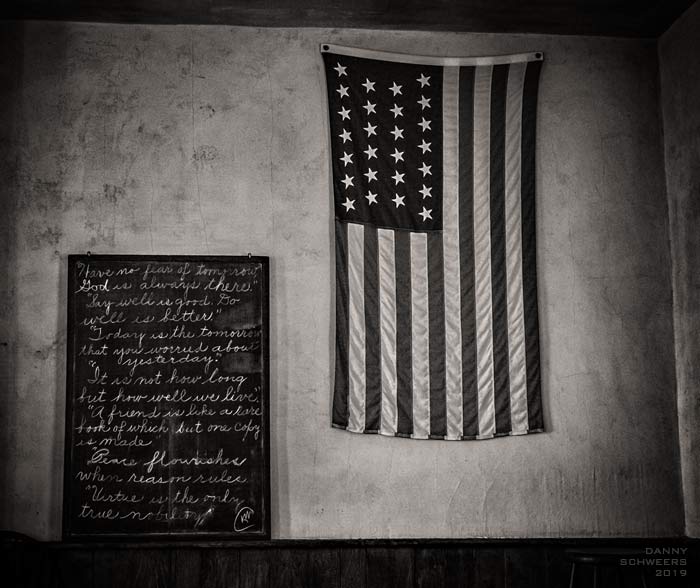 "Have no fear of tomorrow
God is always there."
"Say well is good. Do
well is better."
"Today is the tomorrow
that you worried about
yesterday."
"It is not how long
but how well we live."
"A friend is like a rare
book of which but one copy
is made."
"Peace flourishes
when reason rules.
"Virtue is the only
true nobility"
DANNY
SCHWEERS
2019